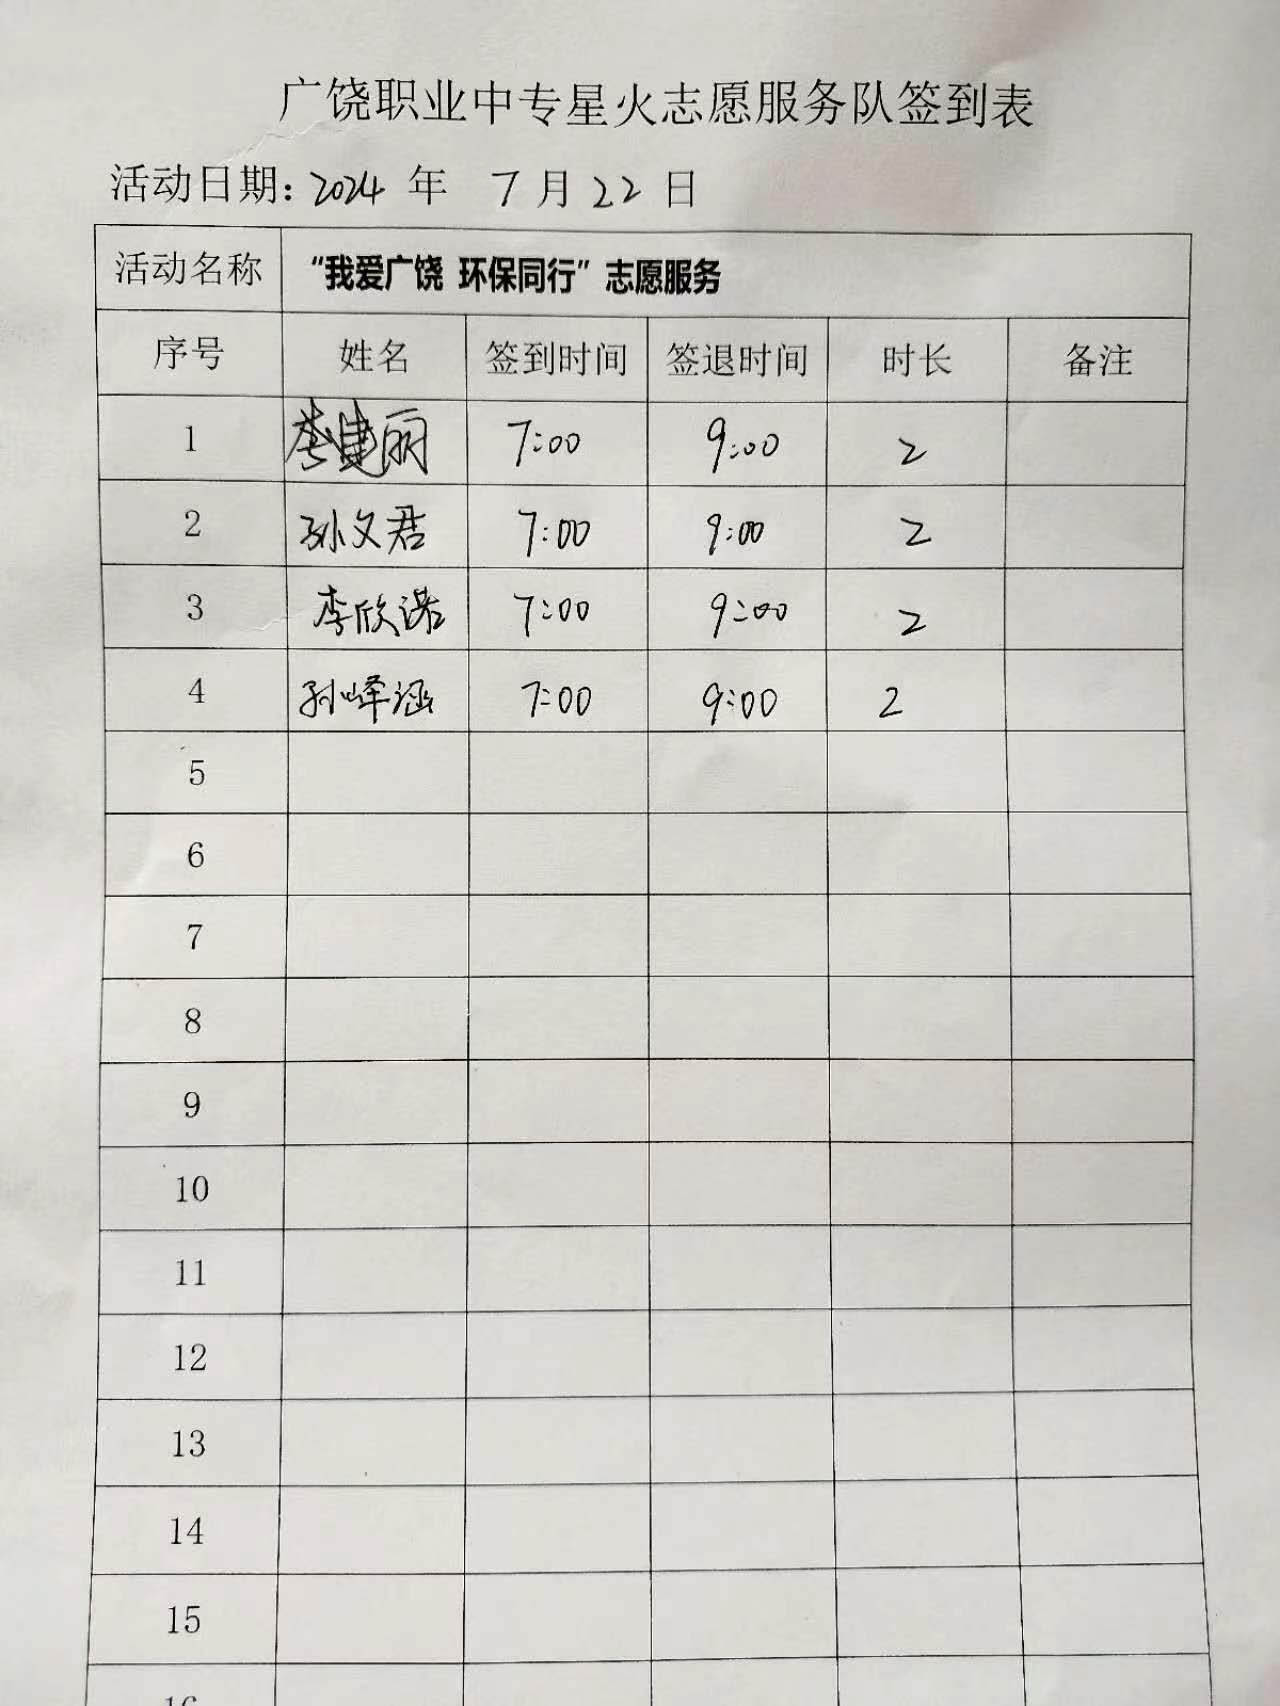 广饶职业中专星火志愿服务队签到表
活动日期: 2024 年 7 月 22 日
活动名称 “我爱广饶 环保同行”志愿服务
序号 姓名 签到时间 签退时间 时长 备注
1 李建丽 7:00 9:00 2
2 孙文君 7:00 9:00 2
3 李欣诺 7:00 9:00 2
4 孙峄涵 7:00 9:00 2
5
6
7
8
9
10
11
12
13
14
15
16